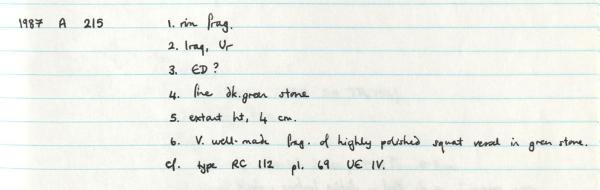 1987 A 215 1. rim frag.
2. Iraq, Ur
3. ED?
4. fine dk.green stone
5. extant ht, 4 cm.
6. V. well-made frag. of highly polished squat vessel in green stone.
cf. type RC 112 pl. 69 UE IV.